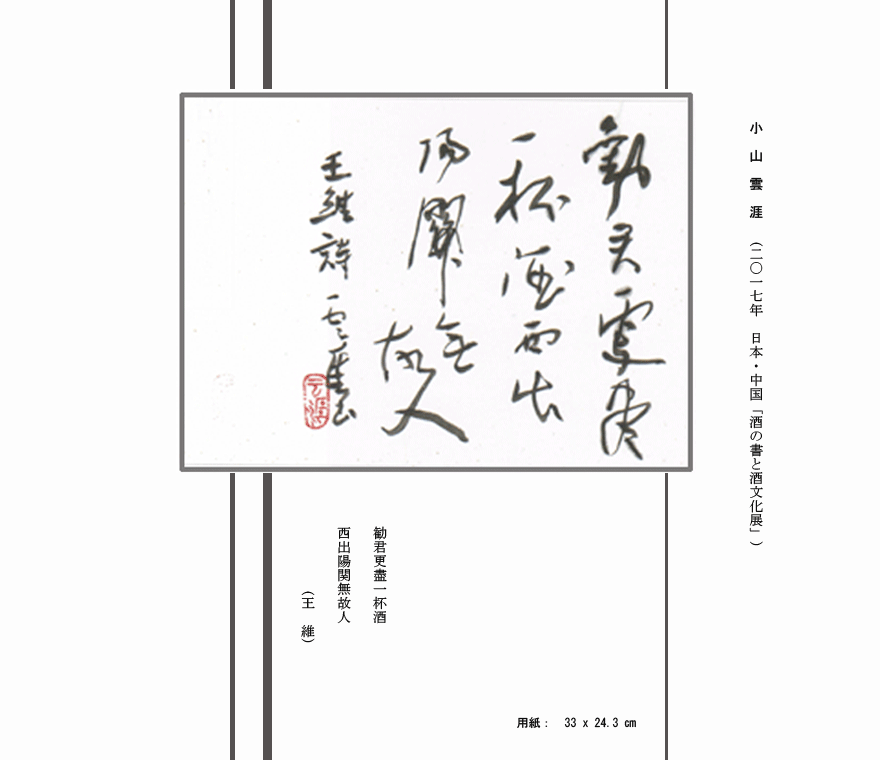 小山雲涯 (二〇一七年 日本・中国「酒の書と酒文化展」)
勧君更盡
一杯酒西出
陽關無
故人
王維詩 雲崖書
雲涯
勧君更盡一杯酒
西出陽関無故人
(王 維)
用紙： 33 x 24.3 cm